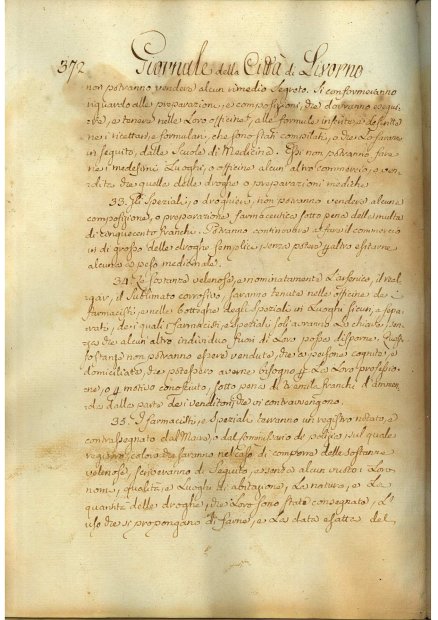 372 Giornale della Città di Livorno
non potranno vendere alcun rimedio segreto. Si conformeranno
riguardo alle preparazioni, e composizioni, che dovranno esegui-
re, e tenere nelle Loro officine, alle formule inserite e descritte
nei ricettari, e formulari, che sono stati compilati, o che Lo saranno
in seguito, dalle Scuole di Medicina. Essi non potranno fare
ne i medesimi Luoghi, o officine alcun altro commercio, e ven-
dita che quella delle droghe o preparazioni mediche
33. Gli Speziali, e droghieri, non potranno vendere alcuna
composizione, o preparazione farmaceutica sotto pena della multa
di cinquecento franchi. Potranno continuare a fare il commercio
in di grosso delle droghe semplici, senza poter per altro esitarne
alcuna a peso medicinale.
34. Le sostanze velenose, e nominatamente L'arsenico, il real-
gar, il Sublimato corrosivo, saranno tenute nelle officine de i
farmacisti, e nelle botteghe degli Speziali in Luoghi sicuri, e sepa-
rati, de i quali i farmacisti, e speziali soli avranno La chiave, sen-
za che alcun altro individuo fuori di Loro possa disporne. Queste
sostanze non potranno essere vendute, che a persone cognite, e
domiciliate, che potessero averne bisogno per La Loro professio-
ne, o per motivo conosciuto, sotto pena di tremila franchi d'ammen-
da dalla parte de i venditori, che vi contravvengono.
35. I farmacisti, e Speziali terranno un registro notato, e
contrassegnato dal Maire, o dal Commissario di polizia, sul quale
registro coloro che saranno nel caso di comprare delle sostanze
velenose, scriveranno di seguito, e senza alcun vuoto i Loro
nomi, qualità, e Luoghi di abitazione, La natura, e La
quantità delle droghe, che Loro sono state consegnate, L'u-
so che si propongano di farne, e La data esatta del